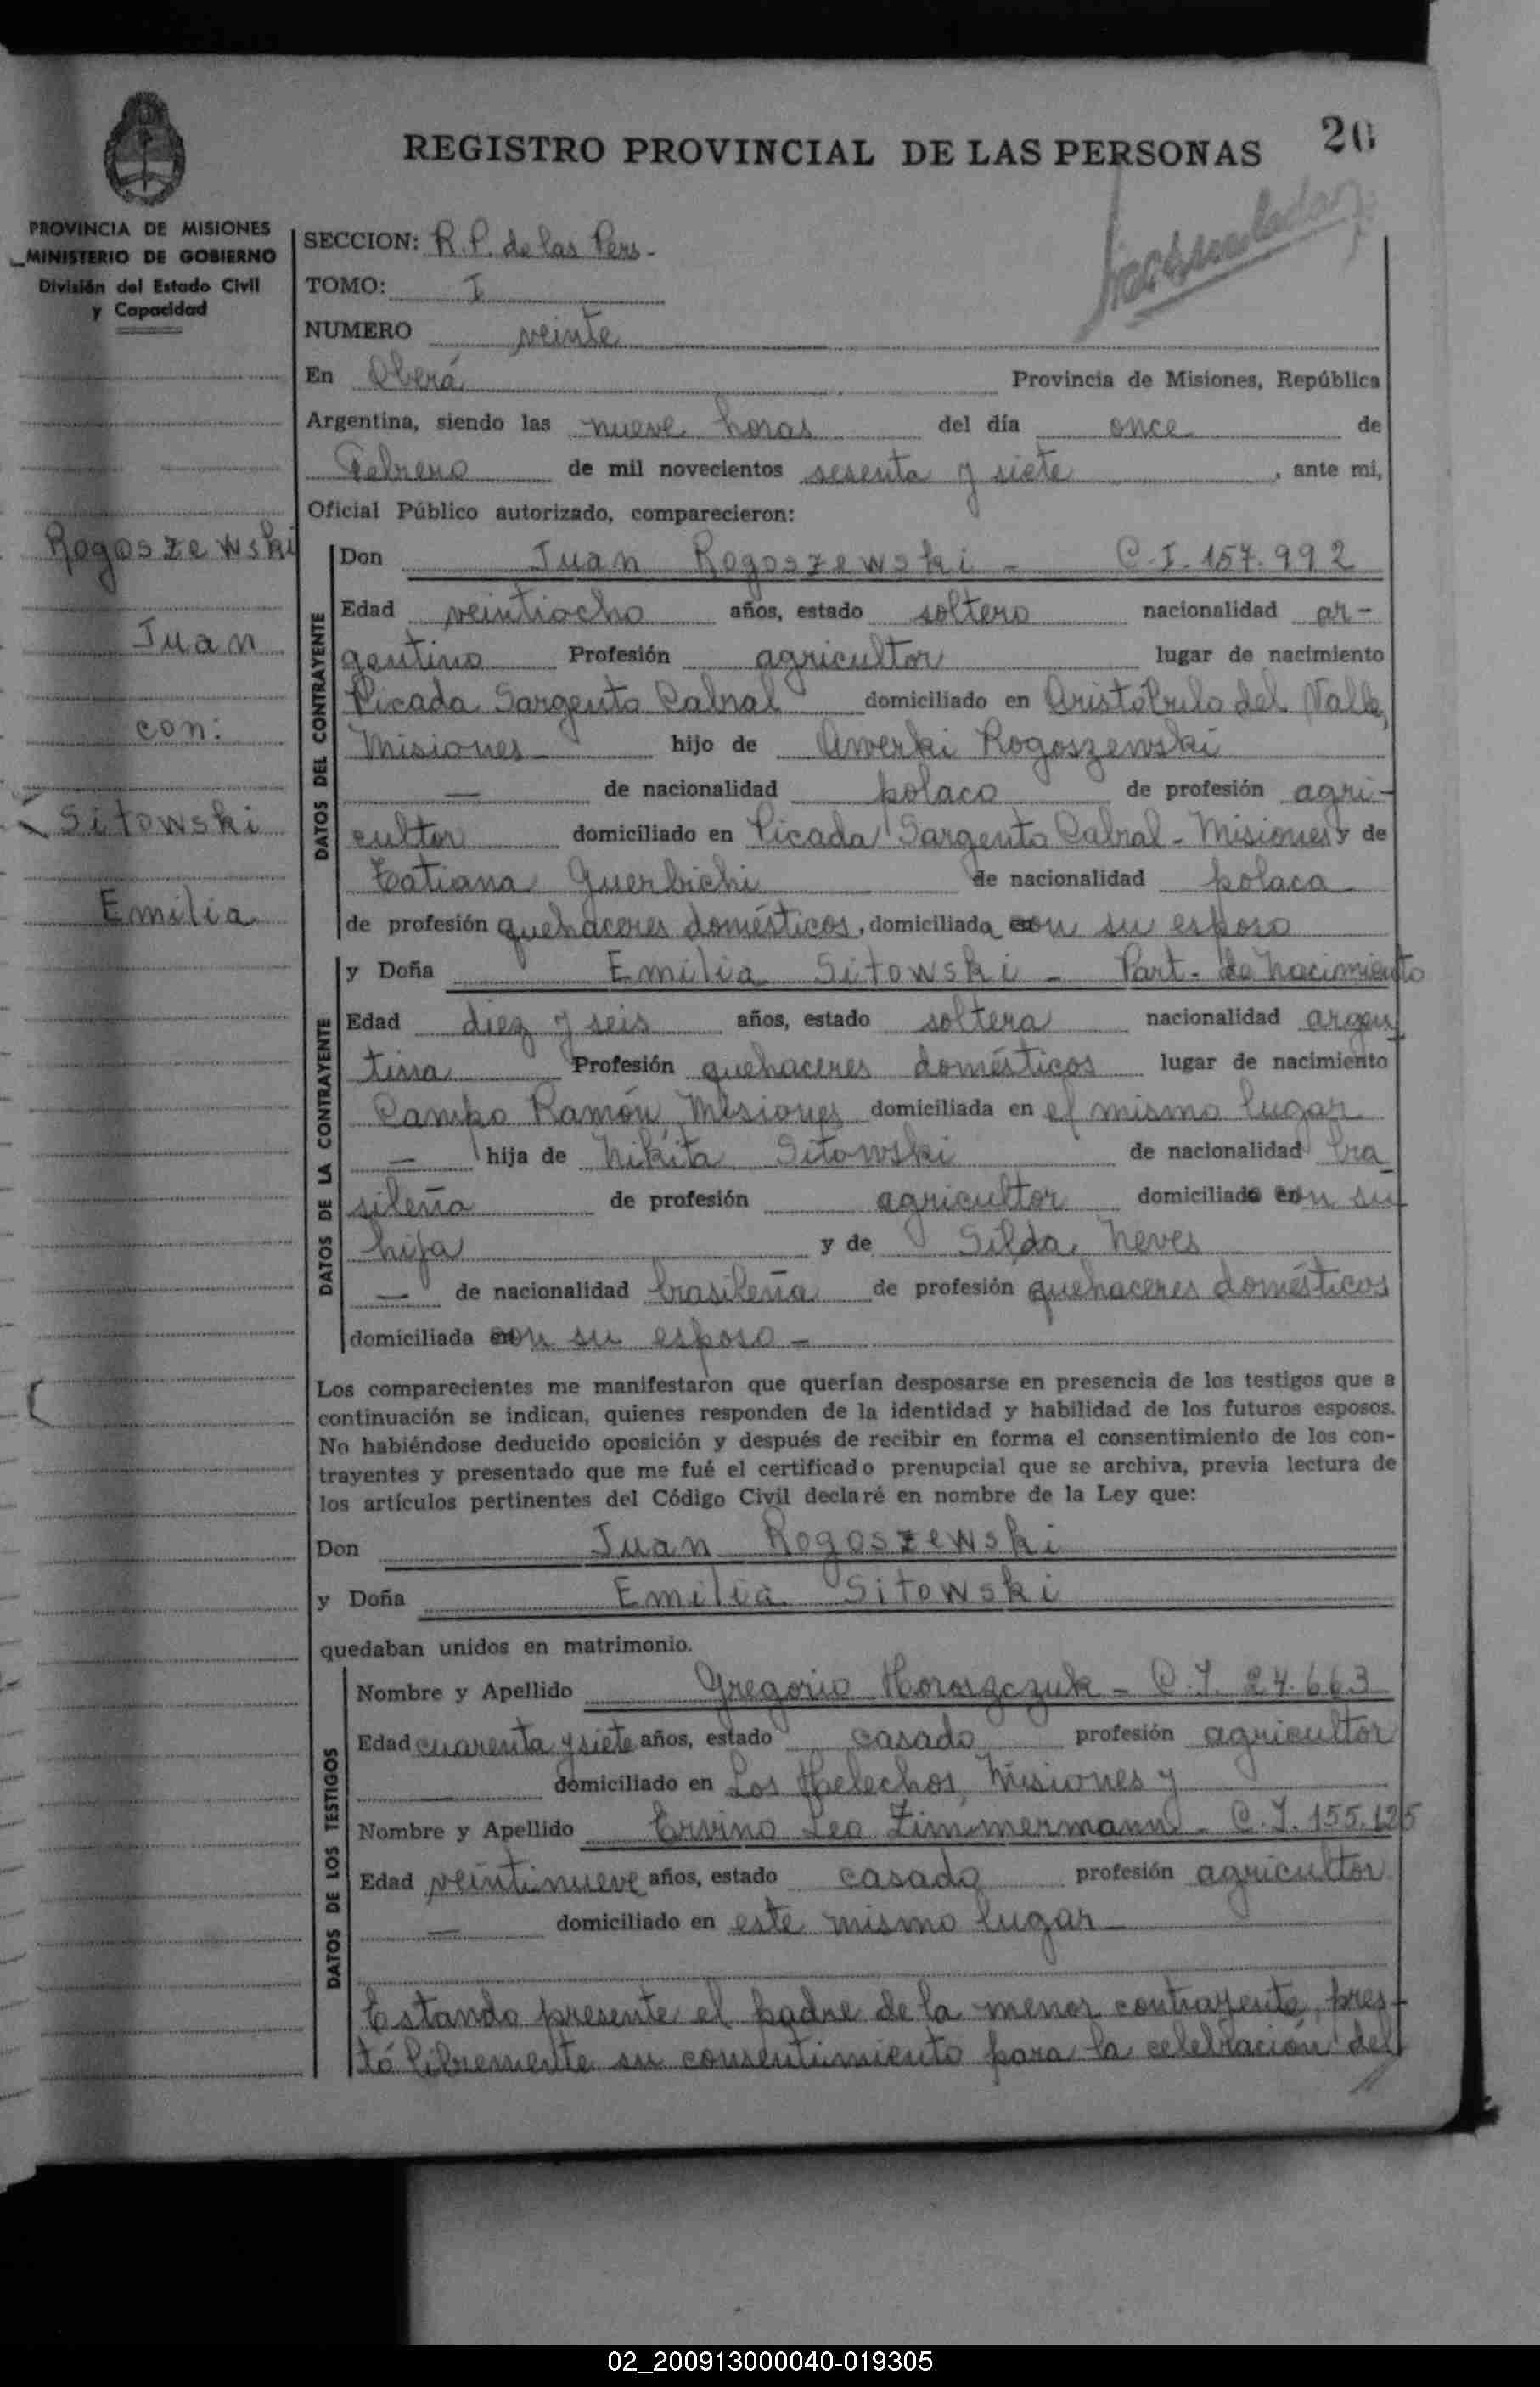 REGISTRO PROVINCIAL DE LAS PERSONAS
20
PROVINCIA DE MISIONES
MINISTERIO DE GOBIERNO
División del Estado Civil
y Capacidad
Rogoszewski
Juan
con:
Sitowski
Emilia
SECCION: R.P. de las Pers-
TOMO: I
NUMERO veinte
En Oberá Provincia de Misiones, República
Argentina, siendo las nueve horas del día once de
Febrero de mil novecientos sesenta y siete, ante mi,
Oficial Público autorizado, comparecieron:
DATOS DEL CONTRAYENTE
Don Juan Rogoszewski - C.I. 157.992
Edad veintiocho años, estado soltero nacionalidad ar-
gentino Profesión agricultor lugar de nacimiento
Picada Sargento Cabral domiciliado en Aristóbulo del Valle,
Misiones hijo de Awerki Rogoszewski
— de nacionalidad polaco de profesión agri-
cultor domiciliado en Picada Sargento Cabral - Misiones y de
Tatiana Querbichi de nacionalidad polaca
de profesión quehaceres domésticos, domiciliada con su esposo
DATOS DE LA CONTRAYENTE
y Doña Emilia Sitowski - Part. de Nacimiento
Edad diez y seis años, estado soltera nacionalidad argen
tina Profesión quehaceres domésticos lugar de nacimiento
Campo Ramón, Misiones domiciliada en el mismo lugar
— hija de Nikita Sitowski de nacionalidad bra
sileña de profesión agricultor domiciliado con su
hija y de Silda Neves
— de nacionalidad brasileña de profesión quehaceres domésticos
domiciliada con su esposo -
Los comparecientes me manifestaron que querían desposarse en presencia de los testigos que a
continuación se indican, quienes responden de la identidad y habilidad de los futuros esposos.
No habiéndose deducido oposición y después de recibir en forma el consentimiento de los con-
trayentes y presentado que me fué el certificado prenupcial que se archiva, previa lectura de
los artículos pertinentes del Código Civil declaré en nombre de la Ley que:
Don Juan Rogoszewski
y Doña Emilia Sitowski
quedaban unidos en matrimonio.
DATOS DE LOS TESTIGOS
Nombre y Apellido Gregorio Horoszczuk - C.I. 24.663
Edad cuarenta y siete años, estado casado profesión agricultor
— domiciliado en Los Helechos, Misiones y
Nombre y Apellido Ervino Leo Zimmermann - C.I. 155.125
Edad veintinueve años, estado casado profesión agricultor
— domiciliado en este mismo lugar
Estando presente el padre de la menor contrayente, pres-
tó libremente su consentimiento para la celebración del
02_200913000040-019305